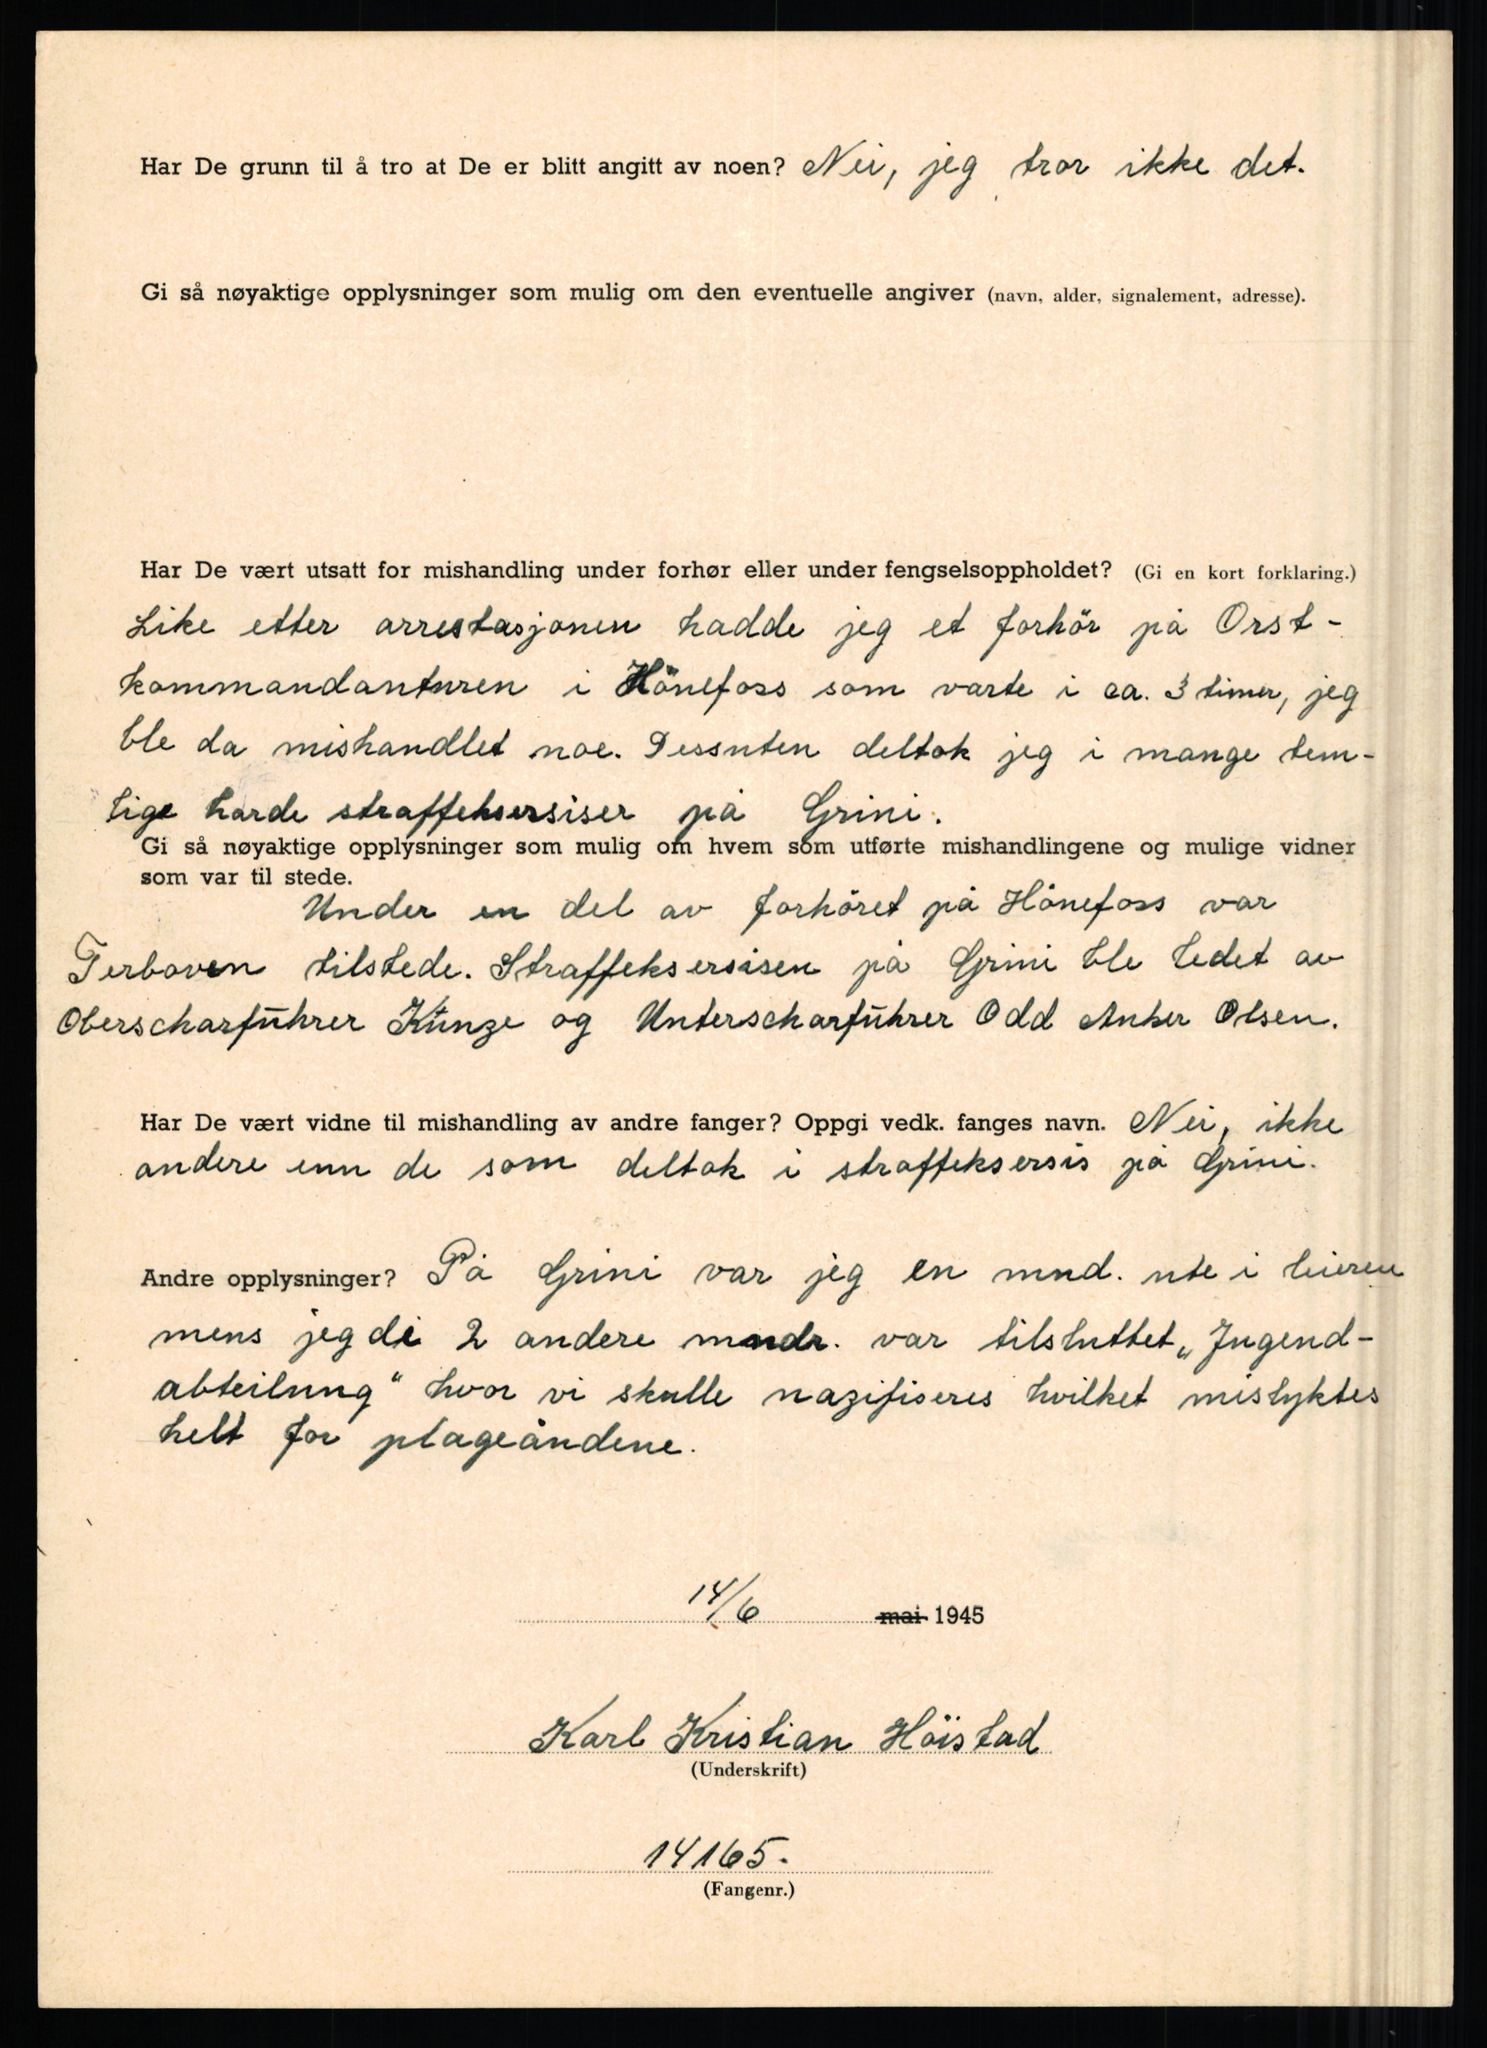 Har De grunn til å tro at De er blitt angitt av noen? Nei, jeg tror ikke det.
Gi så nøyaktige opplysninger som mulig om den eventuelle angiver (navn, alder, signalement, adresse).
Har De vært utsatt for mishandling under forhør eller under fengselsoppholdet? (Gi en kort forklaring.)
Like etter arrestasjonen hadde jeg et forhör på Orst-
kommandanturen i Hönefoss som varte i ca. 3 timer, jeg
ble da mishandlet noe. Dessuten deltok jeg i mange tem-
lige harde straffeksersiser på Grini.
Gi så nøyaktige opplysninger som mulig om hvem som utførte mishandlingene og mulige vidner
som var til stede.
Under en del av forhöret på Hönefoss var
Terboven tilstede. Straffeksersisen på Grini ble ledet av
Oberscharführer Künze og Unterscharführer Odd Anker Olsen.
Har De vært vidne til mishandling av andre fanger? Oppgi vedk. fanges navn. Nei, ikke
andere enn de som deltok i straffeksersis på Grini.
Andre opplysninger? På Grini var jeg en mnd. ute i leieren
mens jeg de 2 andere mndr. var tilsluttet „Jugend-
abteilung“ hvor vi skulle nazifiseres hvilket mislyktes
helt for plageåndene.
14/6 mai 1945
Karl Kristian Höistad
(Underskrift)
14165.
(Fangenr.)